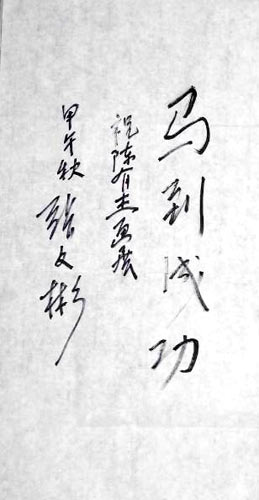 马到成功
祝陈有杰画展
甲午秋 张文彬